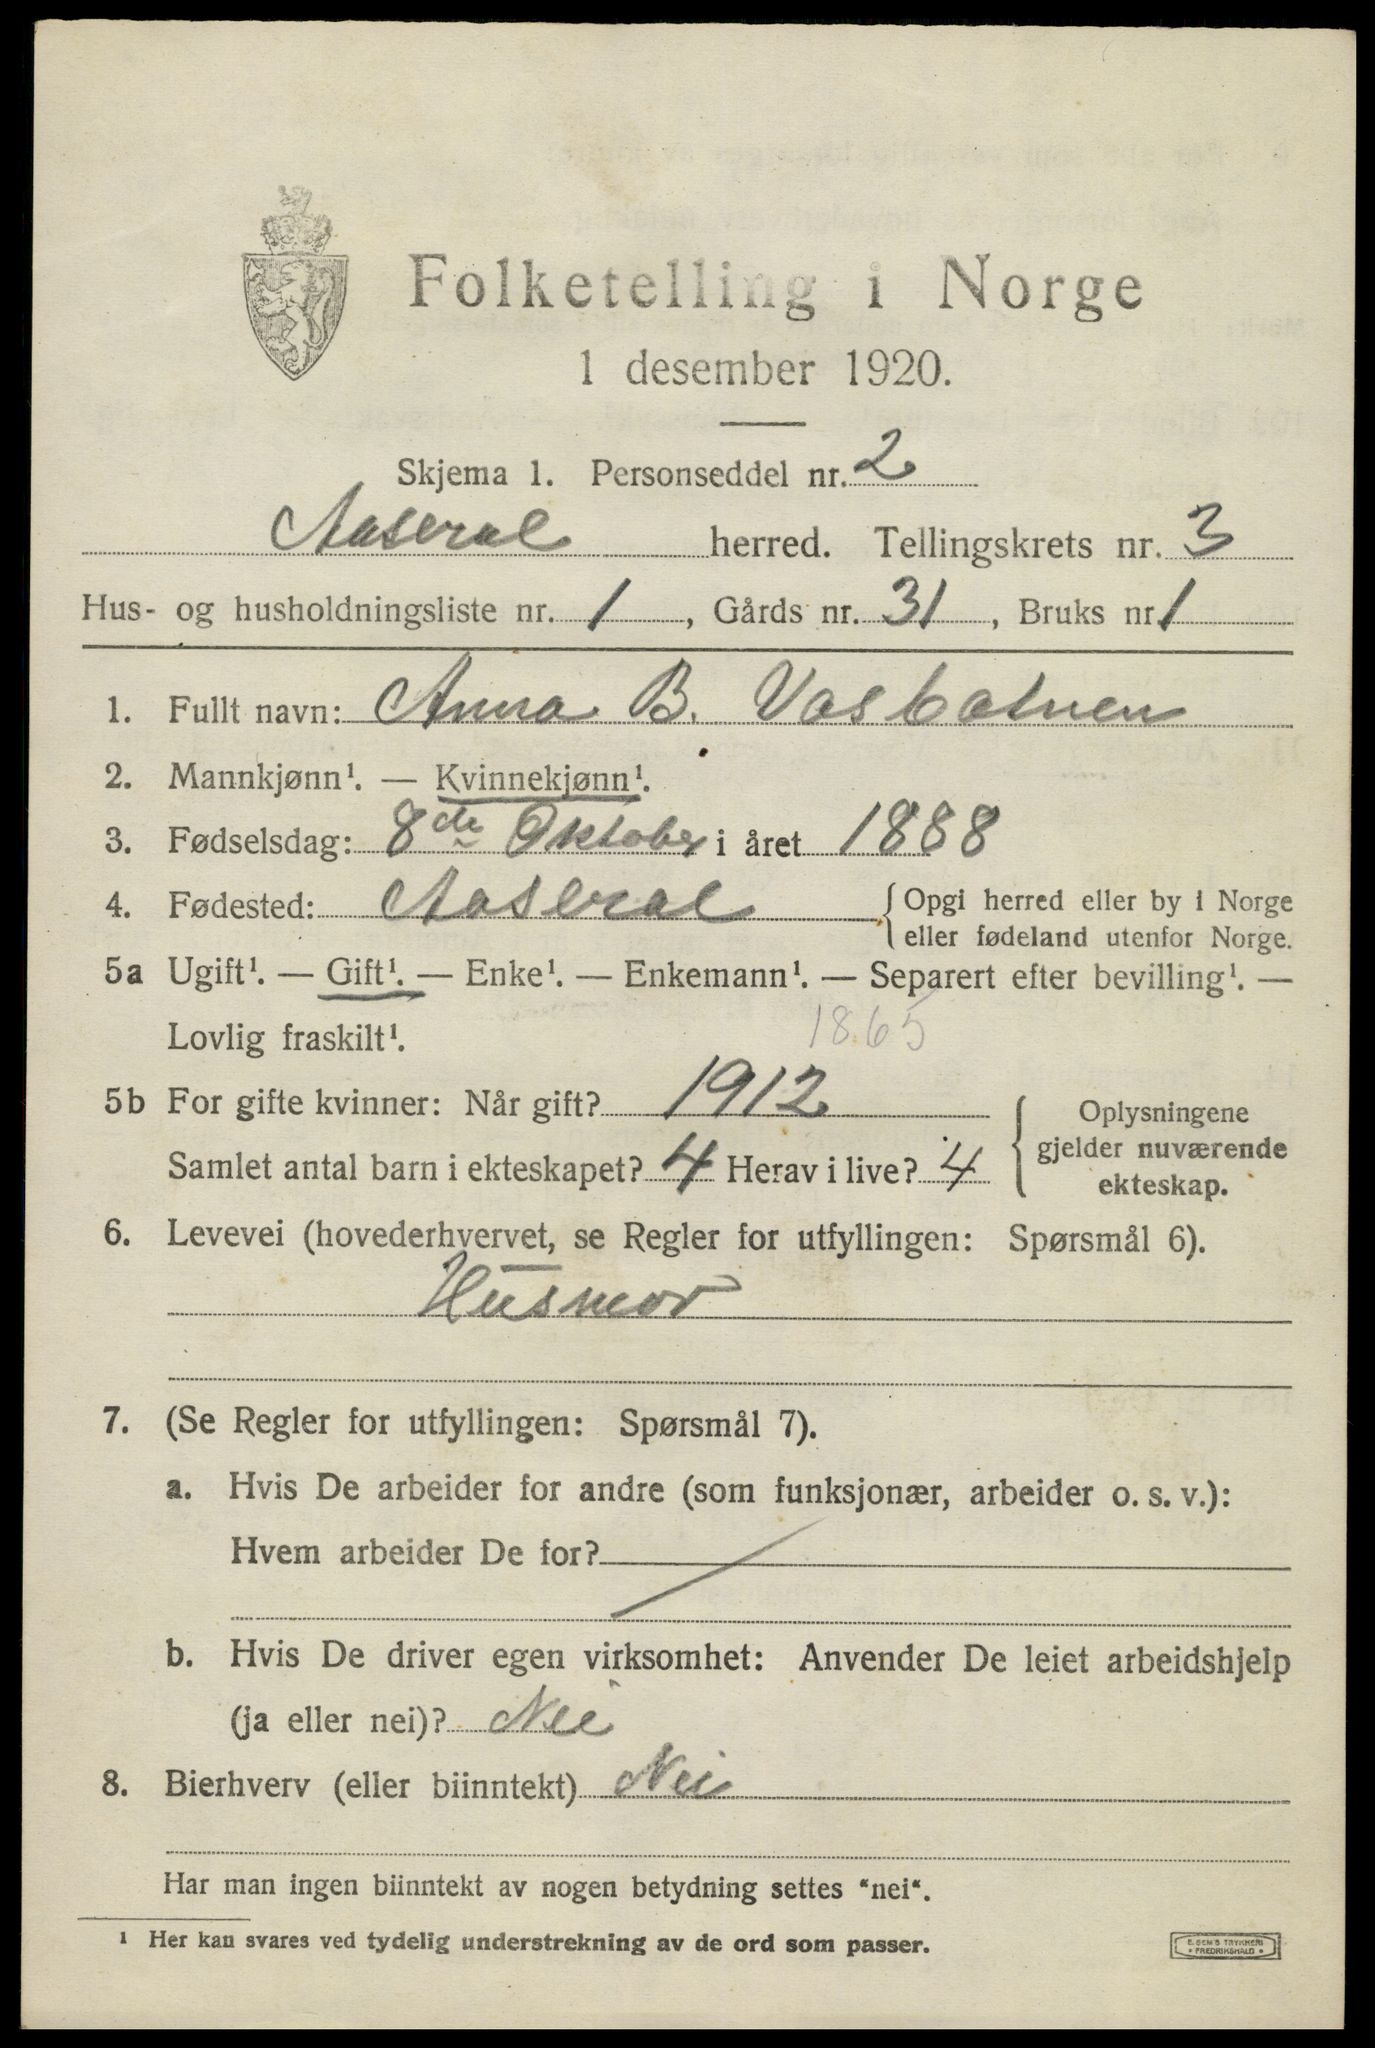 Folketelling i Norge
1 desember 1920.
Skjema 1. Personseddel nr. 2
Aaseral herred. Tellingskrets nr. 3
Hus- og husholdningsliste nr. 1, Gårds nr. 31, Bruks nr. 1
1. Fullt navn: Anna B. Vasbotnen
2. Mannkjønn¹. — Kvinnekjønn¹.
3. Fødselsdag: 8de Oktober i året 1888
4. Fødested: Aaseral { Opgi herred eller by i Norge
eller fødeland utenfor Norge.
5a Ugift¹. — Gift¹. — Enke¹. — Enkemann¹. — Separert efter bevilling¹. —
Lovlig fraskilt¹. 1865
5b For gifte kvinner: Når gift? 1912
Samlet antal barn i ekteskapet? 4 Herav i live? 4
{ Oplysningene
gjelder nuværende
ekteskap.
6. Levevei (hovederhvervet, se Regler for utfyllingen: Spørsmål 6).
Husmor
7. (Se Regler for utfyllingen: Spørsmål 7).
a. Hvis De arbeider for andre (som funksjonær, arbeider o. s. v.):
Hvem arbeider De for? /
b. Hvis De driver egen virksomhet: Anvender De leiet arbeidshjelp
(ja eller nei)? Nei
8. Bierhverv (eller biinntekt) Nei
Har man ingen biinntekt av nogen betydning settes "nei".
¹ Her kan svares ved tydelig understrekning av de ord som passer.
E. SEM'S TRYKKERI
• FREDRIKSHALD •